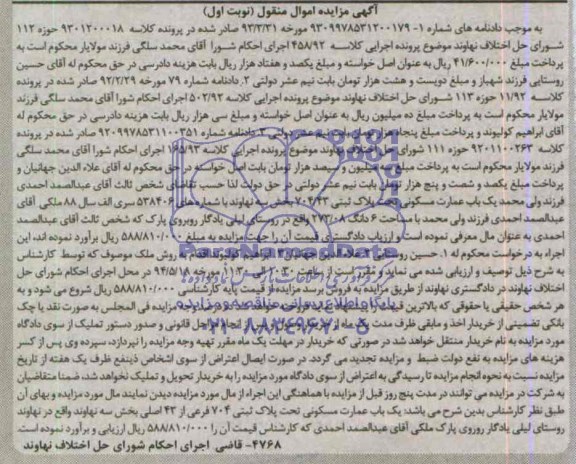 آگهی مزایده اموال منقول (نوبت اول)
به موجب دادنامه های شماره ۱- ۹۳۰۹۹۷۸۵۳۱۲۰۰۱۷۹ مورخه ۹۳/۳/۳۱ صادر شده در پرونده کلاسه ۹۳۰۱۲۰۰۰۱۸ حوزه ۱۱۲
شورای حل اختلاف نهاوند موضوع پرونده اجرایی کلاسه ۴۵۸/۹۲ اجرای احکام شورا آقای محمد سلگی فرزند مولایار محکوم است به
پرداخت مبلغ ۴۱/۶۰۰/۰۰۰ ریال به عنوان اصل خواسته و مبلغ یکصد و هفتاد هزار ریال بابت هزینه دادرسی در حق محکوم له آقای حسین
روستایی فرزند شهباز و مبلغ دویست و هشت هزار تومان بابت نیم عشر دولتی ۲. دادنامه شماره ۷۹ مورخه ۹۲/۲/۲۹ صادر شده در پرونده
کلاسه ۱۱/۹۲ حوزه ۱۱۳ شورای حل اختلاف نهاوند موضوع پرونده اجرایی کلاسه ۵۰۲/۹۲ اجرای احکام شورا آقای محمد سلگی فرزند
مولایار محکوم است به پرداخت مبلغ ده میلیون ریال به عنوان اصل خواسته و مبلغ سی هزار ریال بابت هزینه دادرسی در حق محکوم له
آقای ابراهیم کولیوند و پرداخت مبلغ پنجاه هزار عشر دولتی ۳. دادنامه شماره ۹۲۰۹۹۷۸۵۳۱۱۰۰۳۵۱ صادر شده در پرونده
کلاسه ۹۲۰۱۱۰۰۲۶۳ حوزه ۱۱۱ شورای حل اختلاف نهاوند موضوع پرونده اجرایی کلاسه ۱۶۵/۹۳ اجرای احکام شورا آقای محمد سلگی
فرزند مولایار محکوم است به پرداخت مبلغ میلیون و سیصد هزار تومان بابت اصل خواسته در حق محکوم له آقای علاء الدین جهانیان و
پرداخت مبلغ یکصد و شصت و پنج هزار تومان بابت نیم عشر دولتی در حق دولت لذا حسب تقاضای شخص ثالث آقای عبدالصمد احمدی
فرزند ولی محمد یک باب عمارت مسکونی تحت پلاک ثبتی ۷۰۴/۴۳ بخش سه نهاوند با شماره های ۵۳۸۴۰۶ سری الف سال ۸۸ ملکی آقای
عبدالصمد احمدی فرزند ولی محمد با مساحت ۶ دانگ ۲۷۲/۰۸ واقع در روستای لیلی یادگار روبروی پارک که شخص ثالث آقای عبدالصمد
احمدی به عنوان مال معرفی نموده است و ارزیاب دادگستری قیمت آن را جهت مزایده به مبلغ ۵۸۸/۸۱۰/۰۰۰ ریال برآورد نموده اند، این
اجراء به درخواست محکوم له ۱. حسین روستایی ۲. علاء الدین جهانیان ۳. ابراهیم کولیوند اقدام به فروش ملک موصوف که توسط کارشناس
به شرح ذیل توصیف و ارزیابی شده می نماید و مقرر است از ساعت ۱۰:۳۰ الی ۱۱:۳۰ مورخه ۹۴/۵/۱۸ در محل اجرای احکام شورای حل
اختلاف نهاوند در دادگستری نهاوند از طریق مزایده به فروش برسد مزایده از قیمت پایه کارشناسی ۵۸۸/۸۱۰/۰۰۰ ریال شروع می شود و به
هر شخص حقیقی یا حقوقی که بالاترین قیمت را پیشنهاد فروخته ده درصد وجه مزایده فی المجلس به صورت نقد یا چک
بانکی تضمینی از خریدار اخذ و مابقی ظرف مدت یک ماه از پس از انجام مراحل قانونی و صدور دستور تملیک از سوی دادگاه
مورد مزایده به نام خریدار منتقل خواهد شد در صورتی که خریدار در مهلت یک ماه مقرر تهیه وجه مزایده را نپردازد، سپرده وی پس از کسر
هزینه های مزایده به نفع دولت ضبط و مزایده تجدید می گردد. در صورت ایصال اعتراض از سوی اشخاص ذینفع ظرف یک هفته از تاریخ
مزایده نسبت به نحوه انجام مزایده تا رسیدگی به اعتراض از سوی دادگاه مورد مزایده را به خریدار تحویل و تملیک نخواهد شد، ضمنا متقاضیان
به شرکت در مزایده می توانند در مدت پنج روز قبل از مزایده با هماهنگی این اجراء از مال مورد مزایده دیدن نمایند مال مورد مزایده و بهای آن
طبق نظر کارشناس بدین شرح می باشد: یک باب عمارت مسکونی تحت پلاک ثبتی ۷۰۴ فرعی از ۴۳ اصلی بخش سه نهاوند واقع در نهاوند
روستای لیلی یادگار روروی پارک ملکی آقای عبدالصمد احمدی که کارشناس قیمت آن را ۵۸۸/۸۱۰/۰۰۰ ریال ارزیابی و برآورد نموده است.
۴۷۶۸- قاضی اجرای احکام شورای حل اختلاف نهاوند
ParsNamadData
پایگاه اطلاع رسانی مناقصه و مزایده
۰۲۱-۸۸۳۴۹۶۷۰-۵